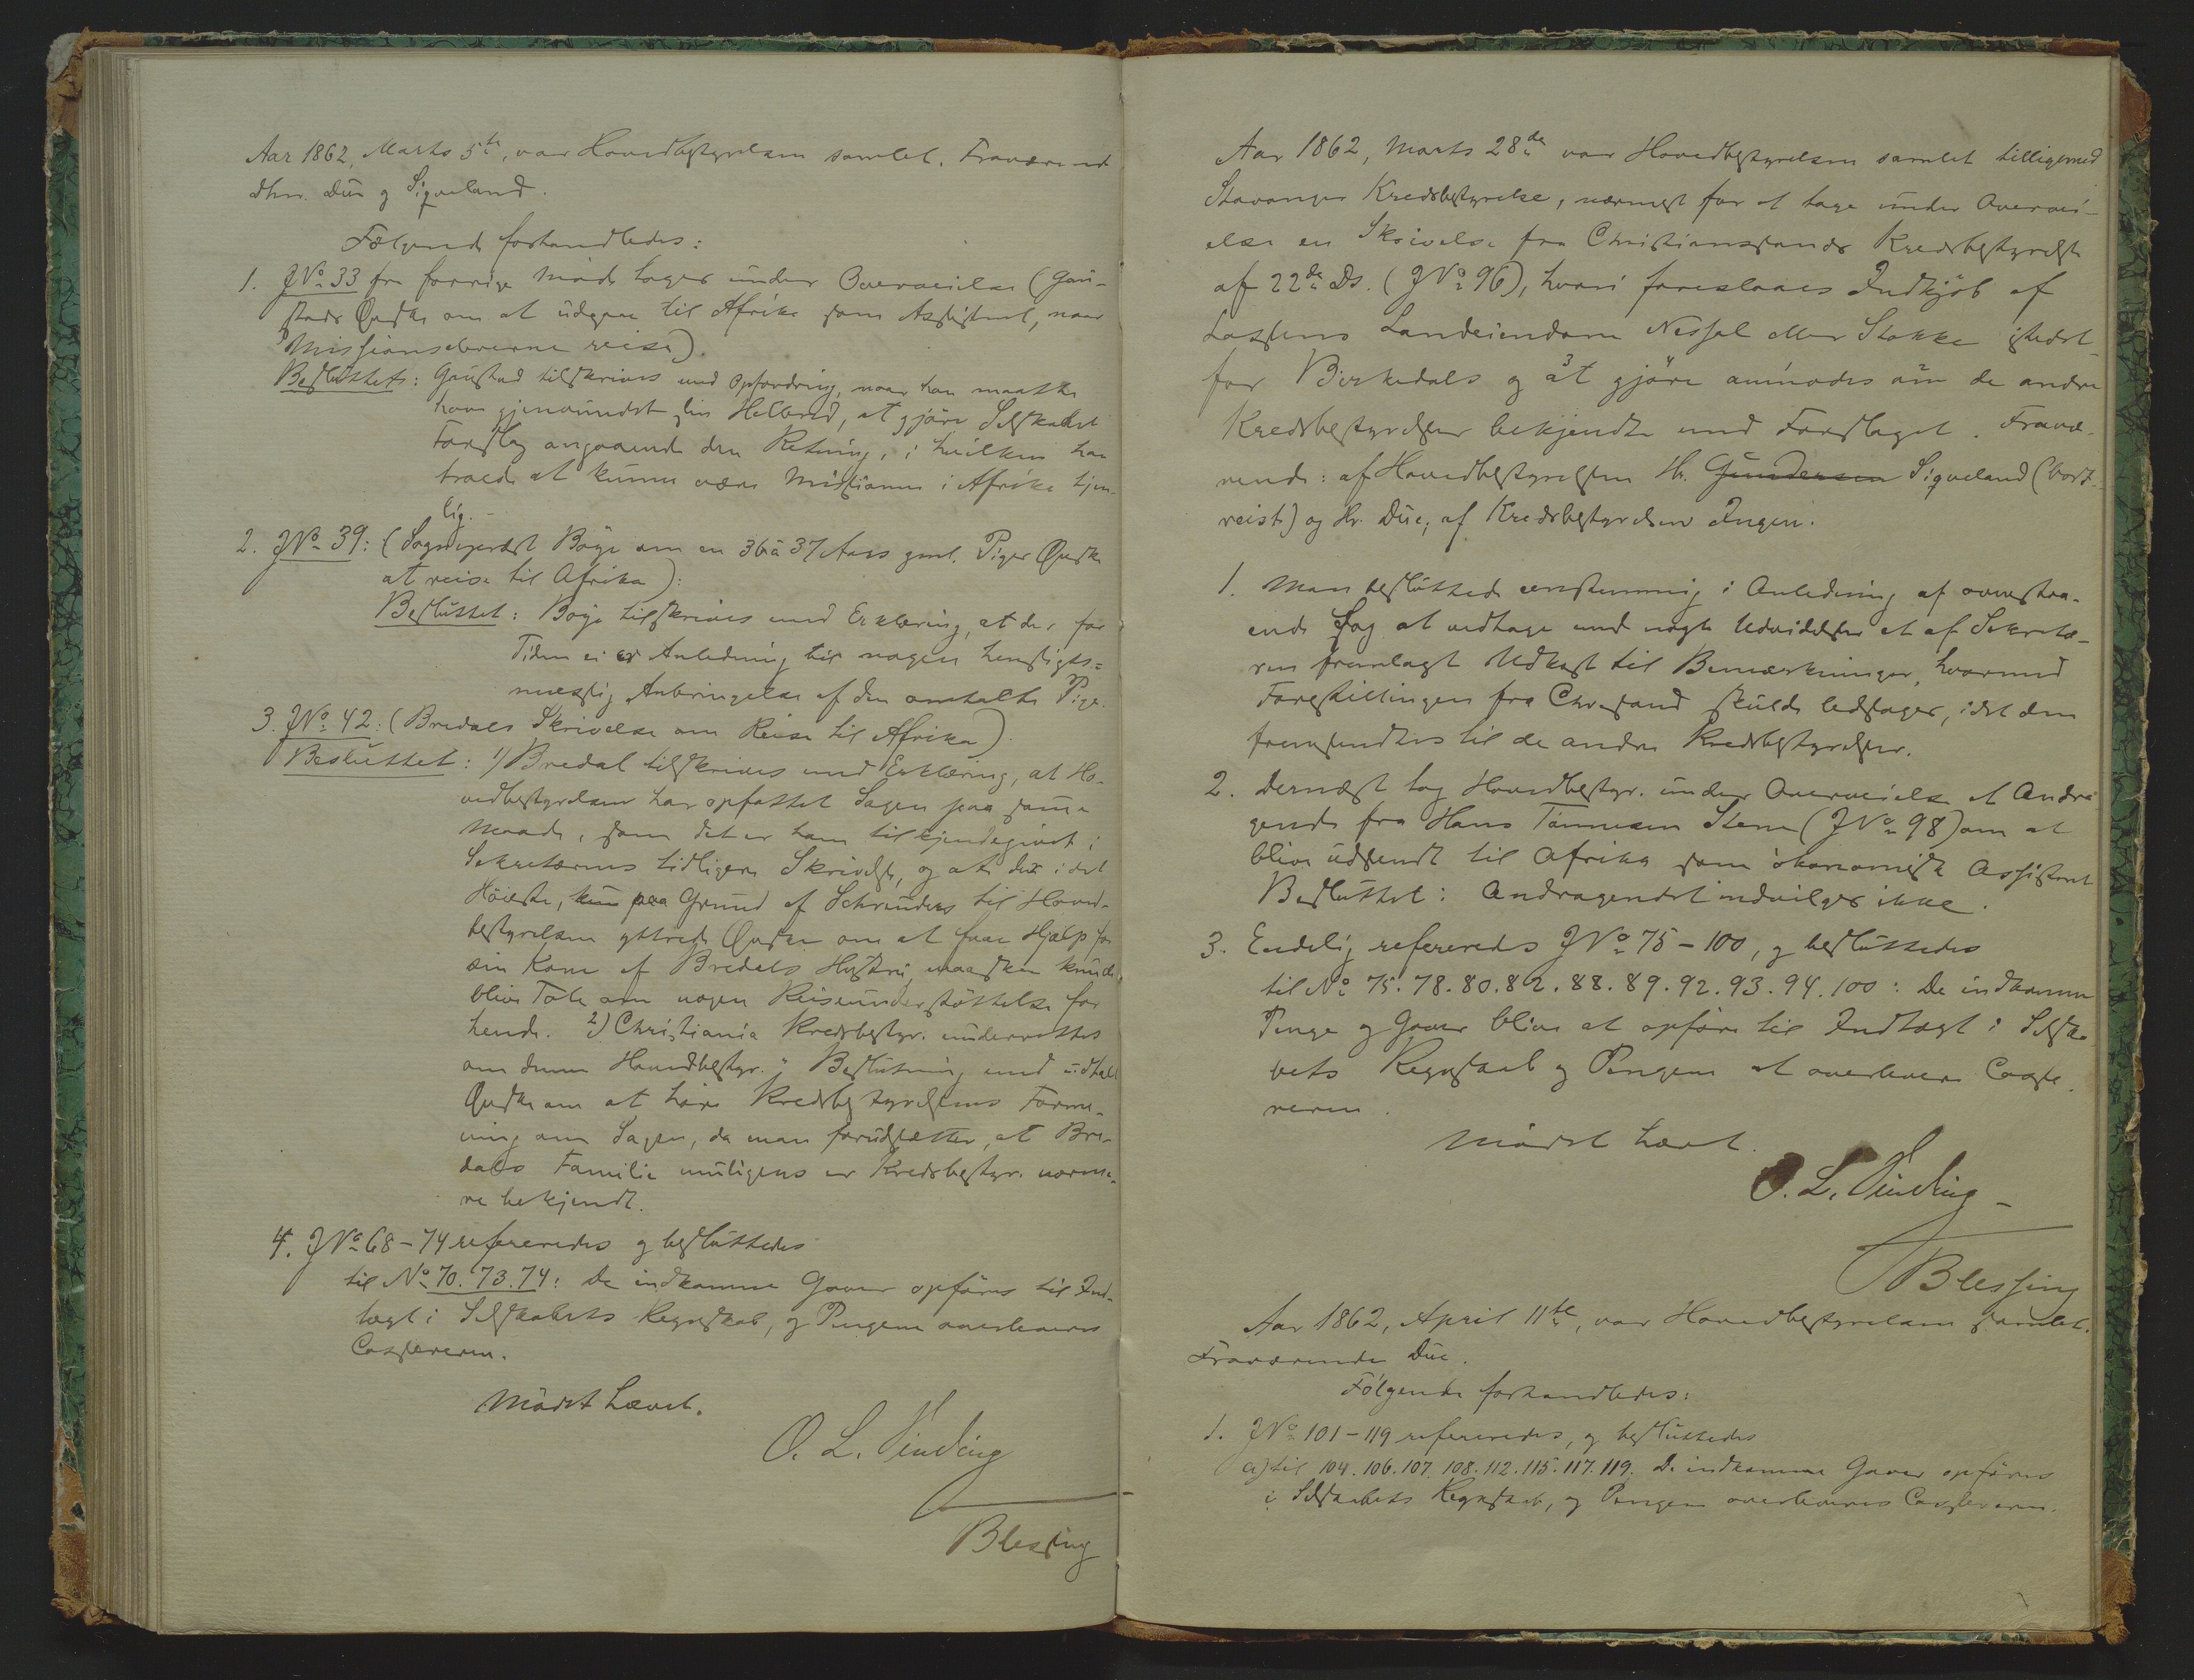 Aar 1862, Marts 5te, var Hovedbestyrelsen samlet. Fraværende
dhrr. Due og Siqveland.
Følgende forhandledes:
1. J№ 33 fra forrige Møde toges under Overveielse (Gau-
stads Ønske om at udgaae til Afrika som Assistent, naar
Missionseleverne reise).
Besluttet: Gaustad tilskrives med Opfordring, naar han maatte
have gjenvundet sin Helbred, at gjøre Selskabet
Forslag angaaende den Retning, i hvilken han
troede at kunne være Missionen i Afrika tjen-
lig. -
2. J№ 39: (Sogneprest Bøye om en 36 à 37 Aars gml. Piges Ønske
at reise til Afrika):
Besluttet: Bøye tilskrives med Erklæring, at der for
Tiden ei er Anledning til nogen hensigts=
mæssig Anbringelse af den omtalte Pige.
3. J№ 42. (Bredals Skrivelse om Reise til Afrika)
Besluttet: 1) Bredal tilskrives med Erklæring, at Ho-
vedbestyrelsen har opfattet Sagen paa samme
Maade, som det er ham tilkjendegivet i
Sekretærens tidligere Skrivelse, og at der i det
Høieste, kun paa Grund af Schreuders til Hoved-
bestyrelsen yttrede Ønske om at faae Hjælp for
sin Kone af Bredals Hustru, maaskee kunde
blive Tale om nogen Reiseunderstøttelse for
hende. 2) Christiania Kredsbestyr. underrettes
om denne Hovedbestyr.s Beslutning med udtalt
Ønske om at høre Kredsbestyrelsens Forme-
ning om Sagen, da man forudsætter, at Bre-
dals Familie muligens er Kredsbestyr. nærme-
re bekjendt.
4. J№ 68-74 refereredes og besluttedes
til № 70. 73. 74: De indkomne Gaver opføres til Ind-
tægt i Selskabets Regnskab, og Pengene overleveres
Cassereren.
Mødet hævet.
O. L. Vinding
Blessing
Aar 1862, Marts 28de var Hovedbestyrelsen samlet tilligemed
Stavanger Kredsbestyrelse, nærmest for at tage under Overvei-
else en Skrivelse fra Christianssands Kredsbestyrelse
af 22de Ds. (J№ 96), hvori foreslaaes Indkjøb af
Landeiendom eller Stokke istedet
for Birkedals og at gjøre anmodes om de andre
Kredsbestyrelser bekjendte med Forslaget. Fravæ-
rende: af Hovedbestyrelsen Hr. Gundersen Siqveland (bort-
reist) og Hr. Due; af Kredsbestyrelsen Ingen.
1. Man besluttede eenstemmig i Anledning af ovenstaa-
ende Sag at vedtage med nogle Udvidelser et af Sekretæ-
ren fremlagt Udkast til Bemærkninger, hvormed
Forestillingen fra Chr.sand skulde ledsages, idet den
fremsendtes til de andre Kredsbestyrelser.
2. Dernæst tog Hovedbestyr. under Overveielse et Andra-
gende fra Hans Tønnesen Stene (J№ 98) om at
blive udsendt til Afrika som økonomisk Assistent
Besluttet: Andragendet indvilges ikke.
3. Endelig refereredes J№ 75-100, og besluttedes
til № 75. 78. 80. 82. 88. 89. 92. 93. 94. 100: De indkomne
Penge og Gaver blive at opføre til Indtægt i Selska-
bets Regnskab og Pengene at overlevere Casse-
reren.
Mødet hævet.
O. L. Vinding
Blessing
Aar 1862, April 11te, var Hovedbestyrelsen samlet.
Fraværende Due.
Følgende forhandledes:
1. J№ 101-119 refereredes, og besluttedes
a) til 104. 106. 107. 108. 112. 115. 117. 119. De indkomne Gaver opføres
i Selskabets Regnskab, og Pengene overleveres Cassereren.